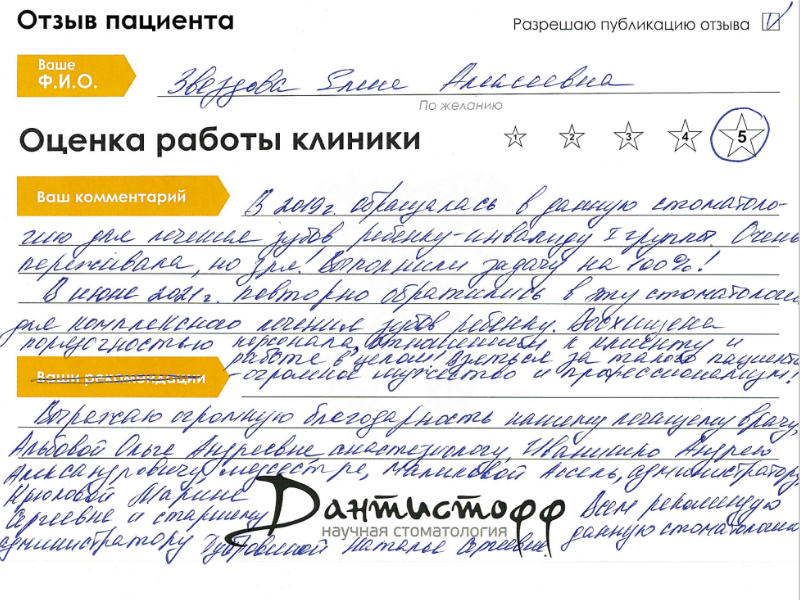 Отзыв пациента
Разрешаю публикацию отзыва
Ваше
Ф.И.О.
Звездова Елене Алексеевна
По желанию
Оценка работы клиники
1 2 3 4 5
Ваш комментарий
В 2019г. обращалась в данную стоматоло-
гию для лечения зубов ребенку-инвалиду I группы. Очень
переживала, но зря! Выполнили задачу на 100%!
В июне 2021г. повторно обратились в эту стоматологию
для комплексного лечения зубов ребенку. Восхищена
порядочностью персонала, отношением к клиенту и
работе в целом! Взяться за такого пациента
Ваши рекомендации
-огромное мужество и профессионализм!
Выражаю огромную благодарность нашему лечащему врачу,
Альбовой Ольге Андреевне, анастезиологу, Иванишко Андрею
Александровичу, медсестре, Маликовой Ассель, администратору
Крюковой Марине
Сергеевне и старшему
Дантистофф
научная стоматология
Всем рекомендую
данную стоматологию
администратору Дубровиной Наталье Сергеевне.